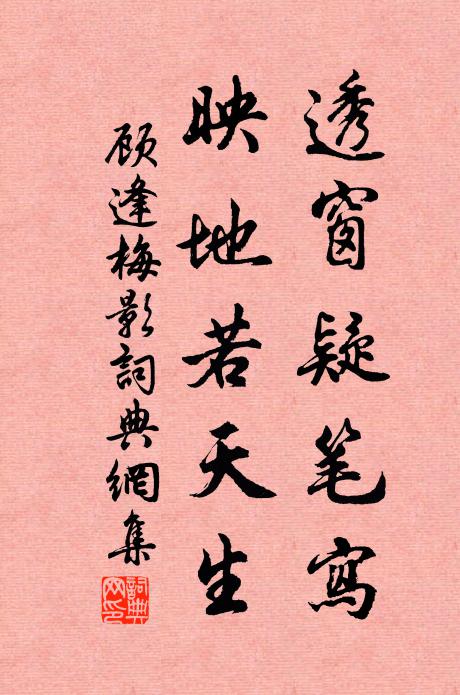 透窗疑笔寫
映地若天生
顾逢梅影詞典網集
詞典網印